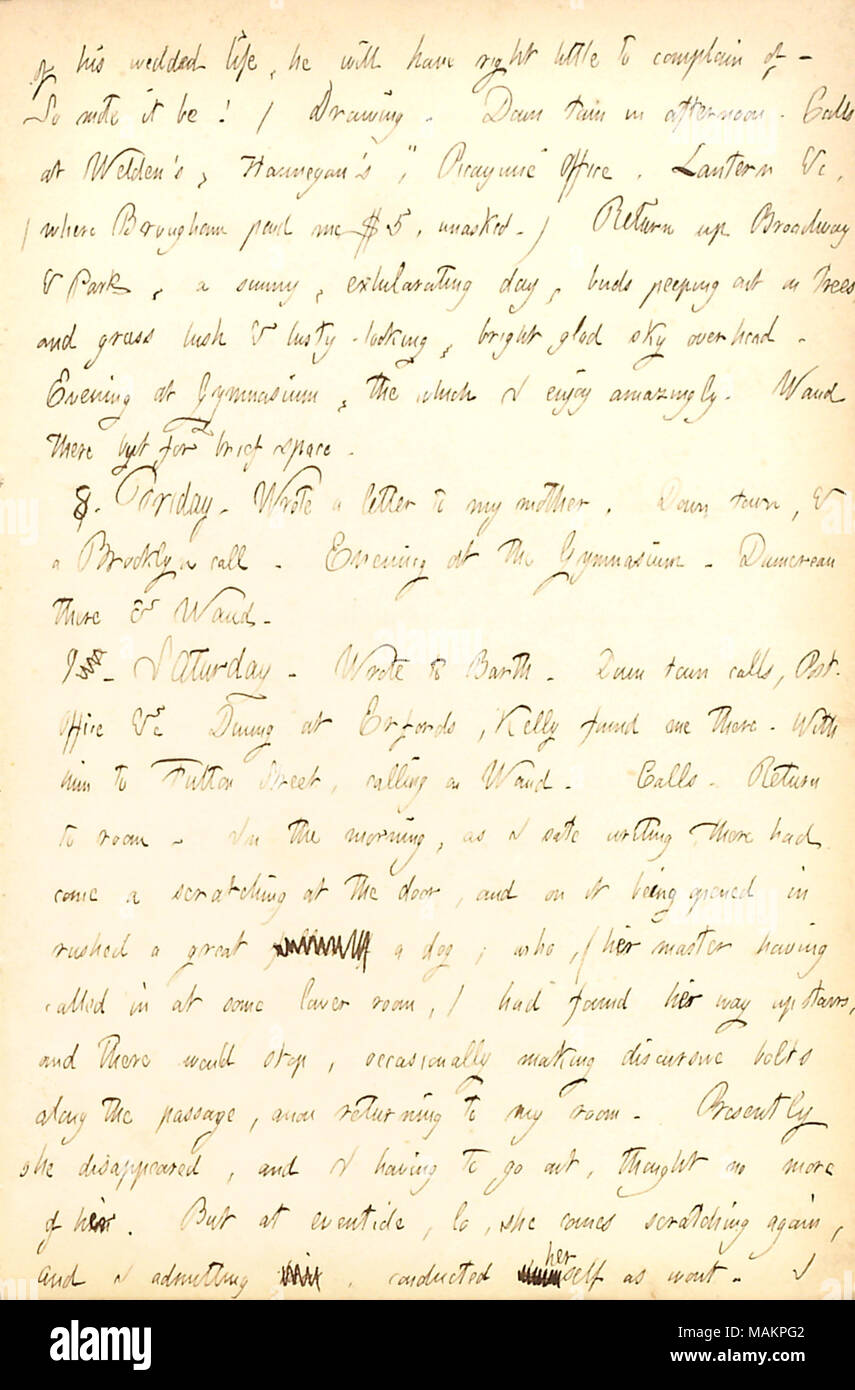 of his wedded life, he will have right little to complain of -
So mote it be! / Drawing. Down town in afternoon. Calls
at Welden's, Hannegan's, " Picayune" Office. Lantern &c,
( where Brougham paid me $5, unasked. ) Return up Broadway
& Park, a sunny, exhilarating day, buds peeping out on trees
and grass lush & lusty-looking, bright glad sky overhead.
Evening at Gymnasium, the which I enjoy amazingly. Waud
there but for brief space.
8. Friday. Wrote a letter to my mother. Down town, &
a Brooklyn call. Evening at the Gymnasium. Damoreau
there & Waud.
9. Saturday. Wrote to Barth. Down town calls, Post-
Office &c Dining at Erfords, Kelly found me there. With
him to Fulton Street, calling on Waud. Calls. Return
to room. In the morning, as I sate writing there had
come a scratching at the door, and on it being opened in
rushed a great a dog; who, ( her master having
called in at some lower room, ) had found her way upstairs,
and there would stop, occasionally making discursive bolts
along the passage, anon returning to my room. Presently
she disappeared, and I having to go out, thought no more
of her. But at eventide, lo, she comes scratching again,
and I admitting, conducted herself as wont. I
alamy
Image ID: MAKPG2
www.alamy.com